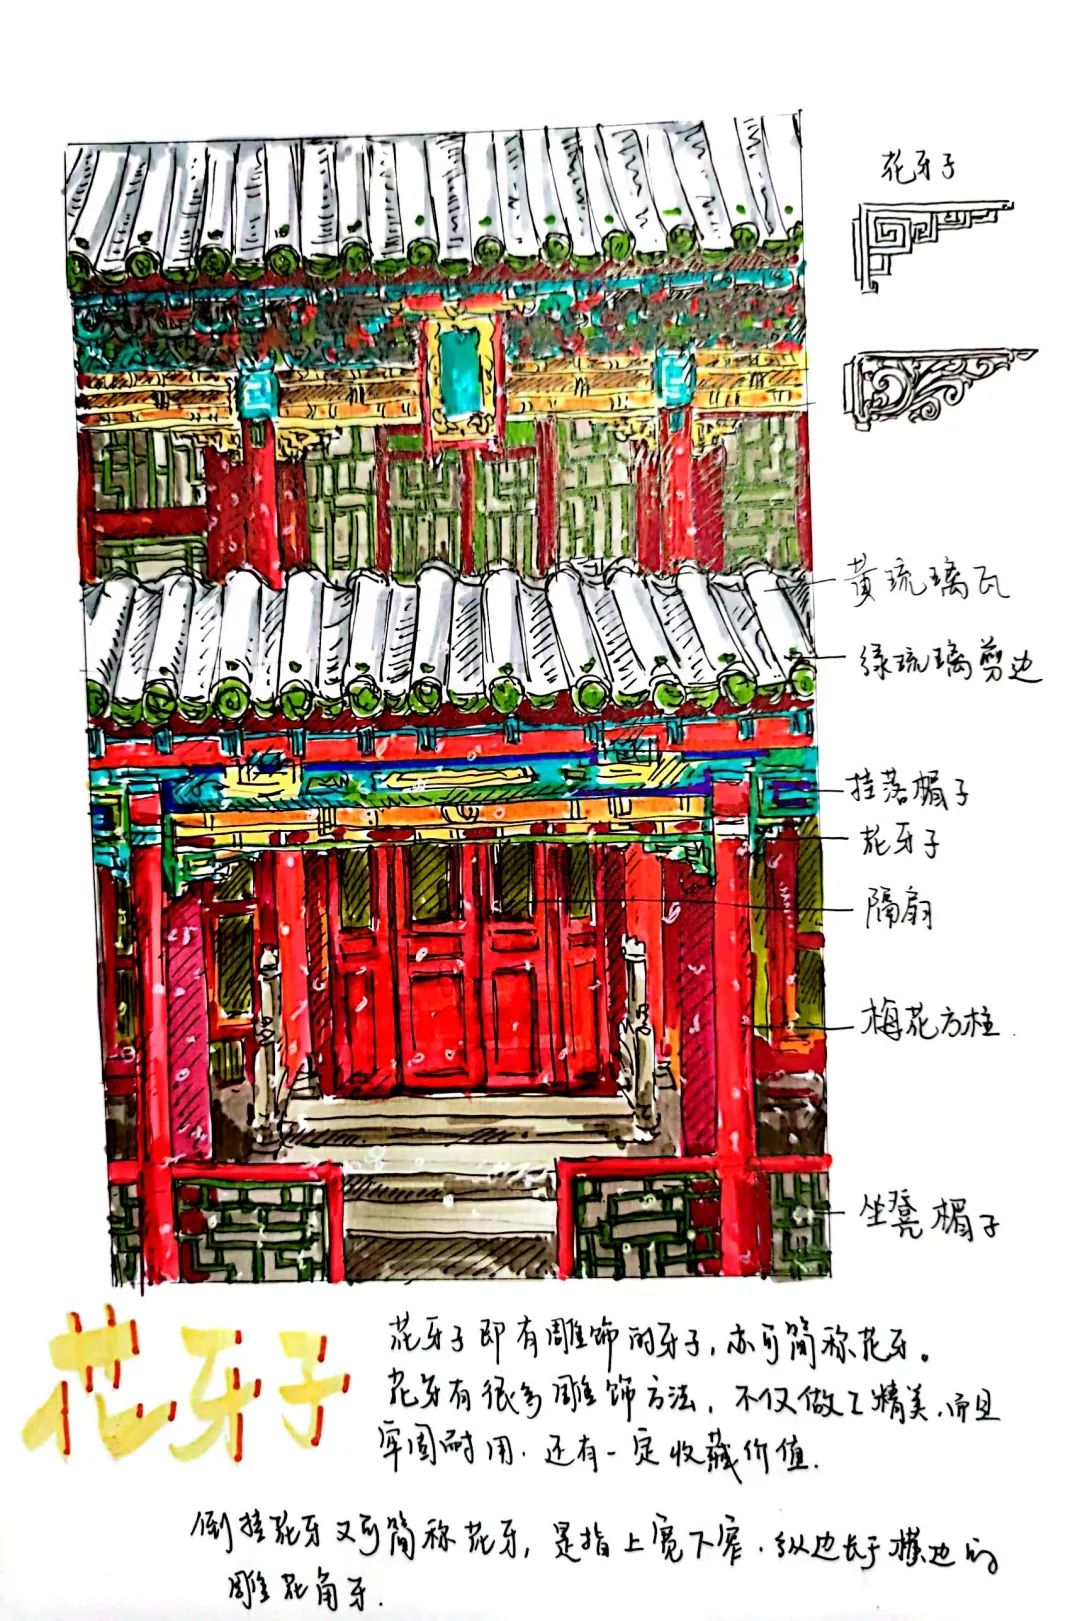 花牙子
黄琉璃瓦
绿琉璃剪边
挂落楣子
花牙子
隔扇
梅花方柱
坐凳楣子
花牙子
花牙子即有雕饰的牙子,亦可简称花牙。
花牙有很多雕饰方法,不仅做工精美,而且
牢固耐用.还有一定收藏价值.
倒挂花牙又可简称花牙,是指上宽下窄.纵边长于横边的
雕花角牙.